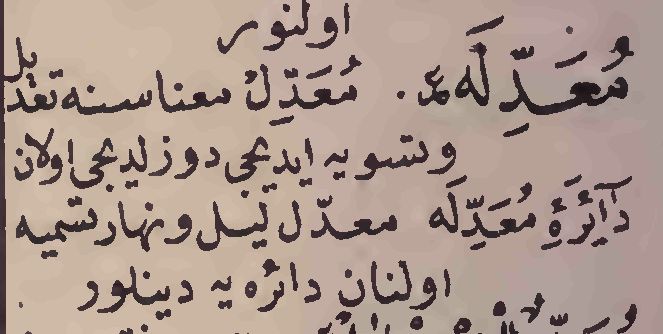 اولنور
مُعَدِّلَه ع. مُعَدِّلْ معناسنه تعديل
وتسويه ايديجى دوزلديجى اولان
دَآئِرَۀِ مُعَدِّلَه معدّل ليل ونهار تسميه
اولنان دائره يه دينلور